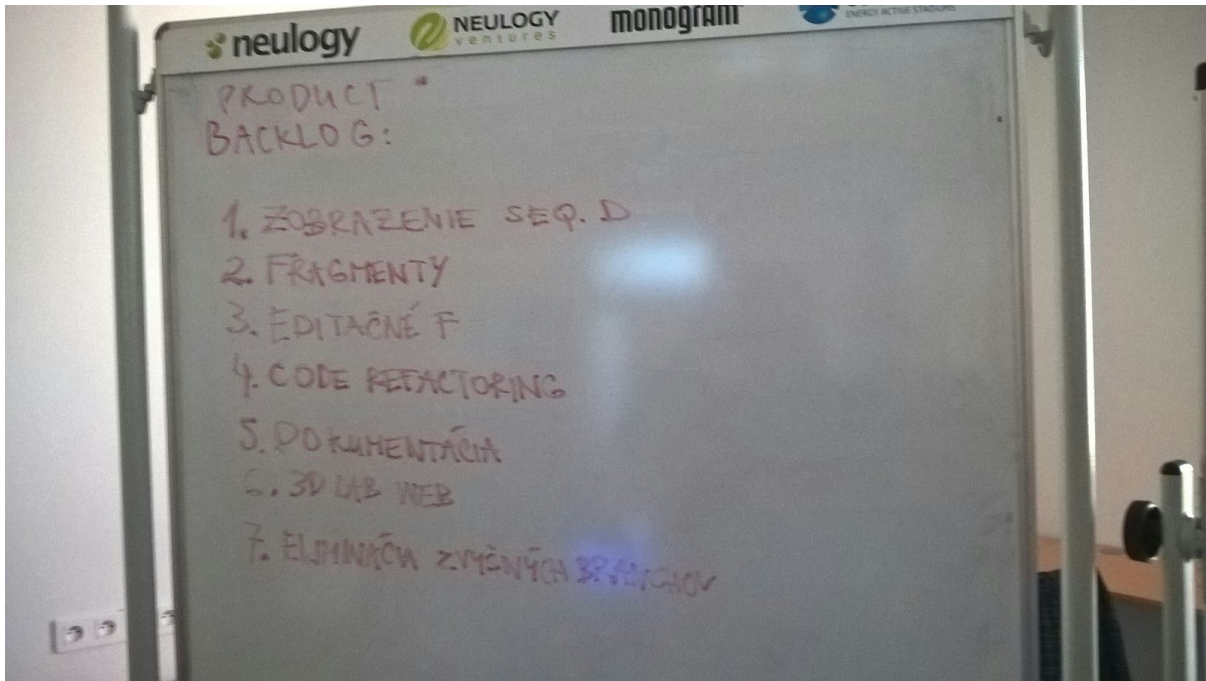 neulogy
NEULOGY
ventures
monogram
ENERGY ACTIVE STADIUMS
PRODUCT
BACKLOG:
1. ZOBRAZENIE SEQ. D
2. FRAGMENTY
3. EDITAČNÉ F
4. CODE REFACTORING
5. DOKUMENTÁCIA
6. 3D LAB WEB
7. ELIMINÁCIA ZVYŠNÝCH BRANCHOV